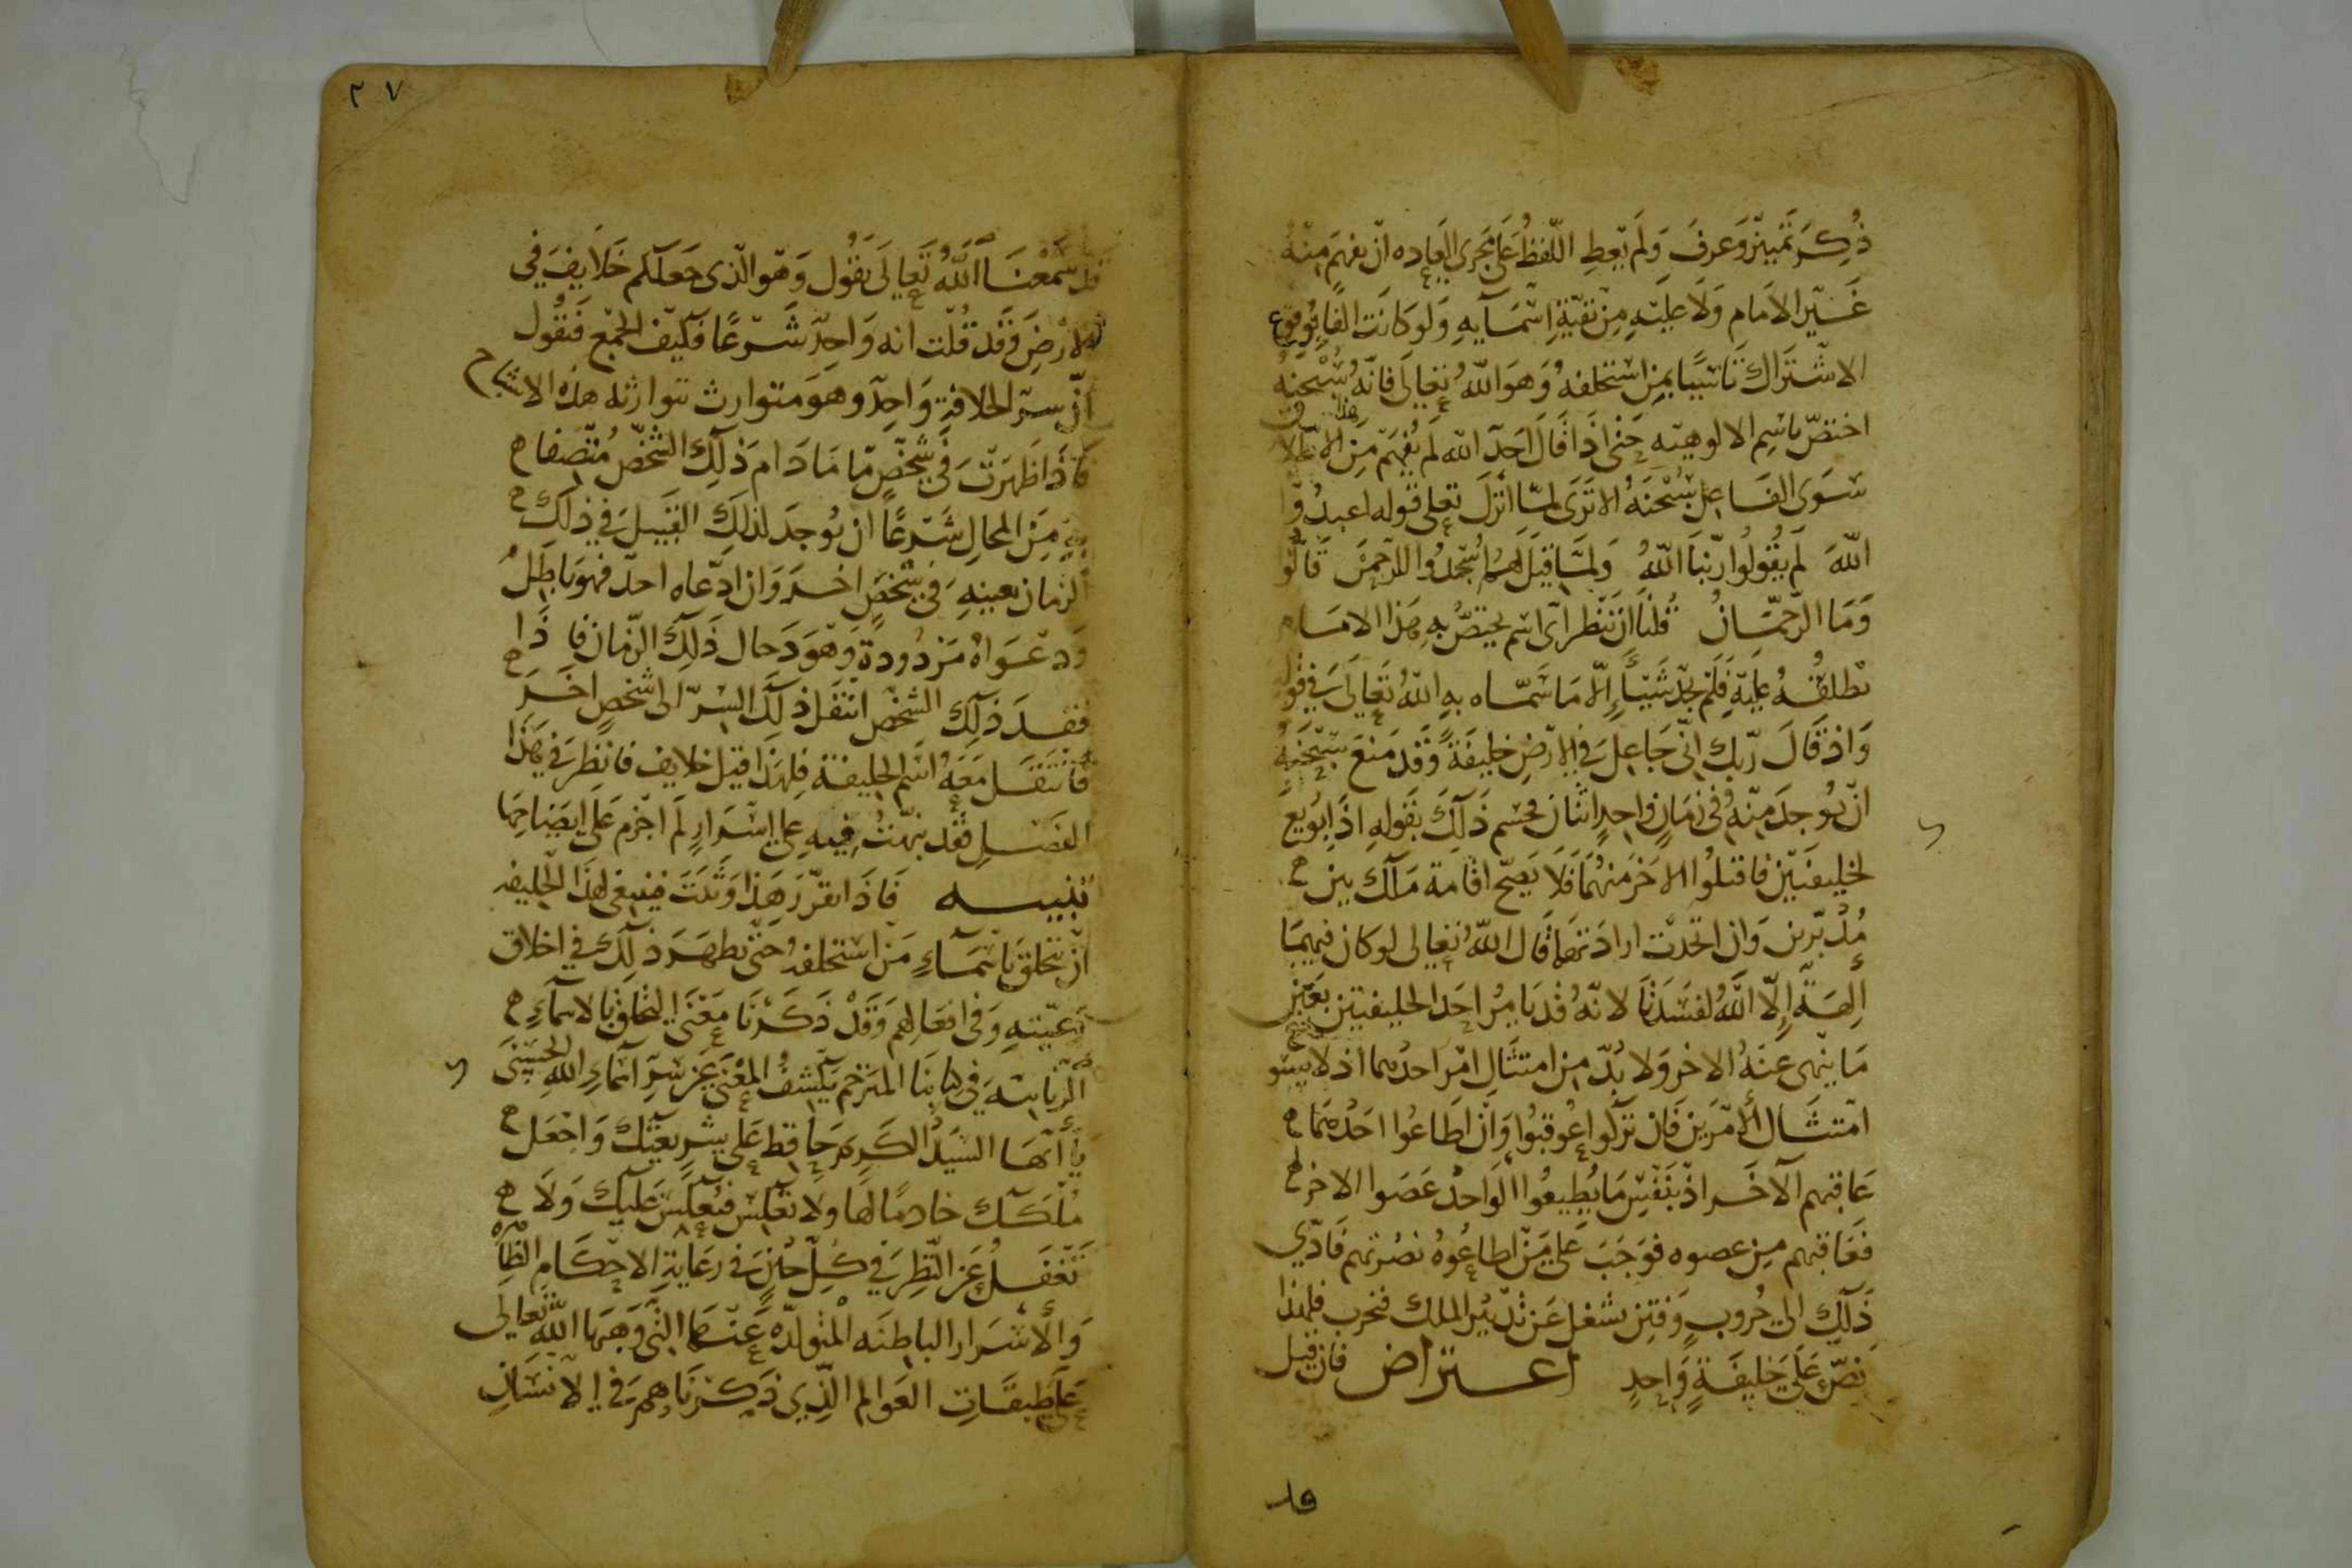 ذُكِرَ تمييز وَعرفَ وَلَم يعطِ اللّفظُ عَلَى مجرى العاده ان يفهم منهُ
غَير الامام وَلَا عليهِ مِن بقيّةِ اسْمَآيهِ وَلو كانت الفابوقوع
الاشتراك تاسّيًا بمن استخلفهُ وَهوَ اللّهُ تعالى فانّهُ سُبْحنهُ
اختصّ باسِم الالوهيّه حتى اذا قالَ احَدٌ اللّه لم يُفهَم مِن هذا الاطلاق
سوَى الفاعل سُبْحنَهُ الا تَرَى لمّا انزلَ تعلى قوله اعبدُوا
اللّهَ لم يقُولُوا ربّنا اللّهُ وَلمّا قيل لَهُم اسْجُدُوا للرّحمن قالُوا
وَمَا الرّحمّان قُلنا ان ننظر اى اسم يختصُّ بهِ هَذا الامَام
نطلقُهُ عليهِ فَلَم نجد شَيئًا إلّا مَا سَمّاه بهِ اللّهُ تَعالَى في قول
وَاذ قَالَ ربّك انّى جَاعِل في الارْضِ خليفَةً وَقَد مَنعَ سُبْحَنهُ
انْ يُوجدَ منهُ فى زمَانٍ واحدٍ اثنان فحسَم ذَلكَ بقَولهِ اذا بُويعَ
لخليفَتين فاقتلُوا الاخرَ منهُمَا فَلَا يَصحّ اقامة مَلك بين
مُدَبّرين وَان اتحدْت ارادَتهما قَال اللّهُ تعالى لو كان فيهمَا
أَلِهَةٌ إلّا اللّهُ لفَسَدَتَا لانّهُ قُد يَامُر احَد الخليفتين بعَين
مَا ينْهى عنَهُ الاخر وَلا بُدّ من امتثَالِ امْر احدُهما اذ لا يسَو
امْتثَال الأمْرَين فَان تَرَلُوا عُوقبُوا وَانْ اطَاعُوا احَدُهمَا
عَاقبهم الآخَر اذْ بنفْس مَا يُطِيعُوا الوَاحدْ عَصَوا الاخر
فَعَاقبهم مِن عصوه فوَجَبَ عَلى مَن اطاعُوهُ نصْرتهم فَادّى
ذَلكِ الى حُروبٍ وَفتِن تشغل عَن تَدْبير الملك فتحرب فلهذا
نصّ عَلَى خَليفَةٍ وَاحدٍ اعـتراض فان قيل
قد
٢٧
قد سَمعْنَا اللّهُ تعالى يَقُول وَهو الّذى جَعَلكم خَلَايفَ في
الارْضِ وَقَد قُلت انه وَاحِدٌ شَرْعًا فكيف الجمْع فَنقُول
انّ سرّ الخلافةِ وَاحِدٌ وهوَ متوارث تتوارثه هَذه الاشباح
فَاذَا ظهَرَتْ في شخْصٍ مّا مَا دَام ذلِكَ الشّخْص مُتّصفا
بهِ مِنَ المحالِ شَرْعًا ان يُوجدَ لذلكَ القبيل في ذلك
الزمان بعينهِ في شخْصٍ اخَر وَان ادّعاه احدٌ فهوَ باطِلٌ
وَدعْوَاهُ مَردُودةٌ وَهوَ دَجال ذَلكَ الزّمان فا ذا
فقدَ ذَلكَ الشّخْص انتقَل ذلكَ السّرّ الى شخصٍ اخَر
فانتقَل مَعَهُ اسم الخليفة فلِهَذا قيل خلايف فانظر في هَذا
الفَصْلِ فقَد نبّهْتُ فيهِ على اسْرَارٍ لَم اجزم عَلى ايضَاحِهَا
تنبيـــه فَاذَا تقرّرَ هَذا وَثَبَتَ فينبغى لهذا الخليفه
ان يتخلقَ باسْمَآءِ مَن استخلفهُ حَتّى يظهَرَ ذَلكَ في اخلاق
رَعيّتهِ وَفى افعَالهِم وَقَدْ ذَكَرْنَا مَعْنَى التخلق بالاسمآءِ
الرّبانيّه فى كتابنَا المترجم بكشف المعْنى عن سرّ اسْماءِ اللّهِ الحسنى
يَا أيّهَا السّيدُ الكريم حَافظ عَلى شريعتك وَاجْعَل
مُلكَك خادمًا لهَا ولا تعْكِس فيُعْكَس عَليك وَلَا
تَغفل عَن النّظر فى كلّ حين فى رعَايةِ الاحْكَام الظّاهرة
وَالأسْرَار الباطنَه المتولدّه عَنهَا الّتى وَهبَها اللّه تعَالى
عَلى طبقَاتِ العَوالم الّذى ذكرنَاهم فى الانسَان